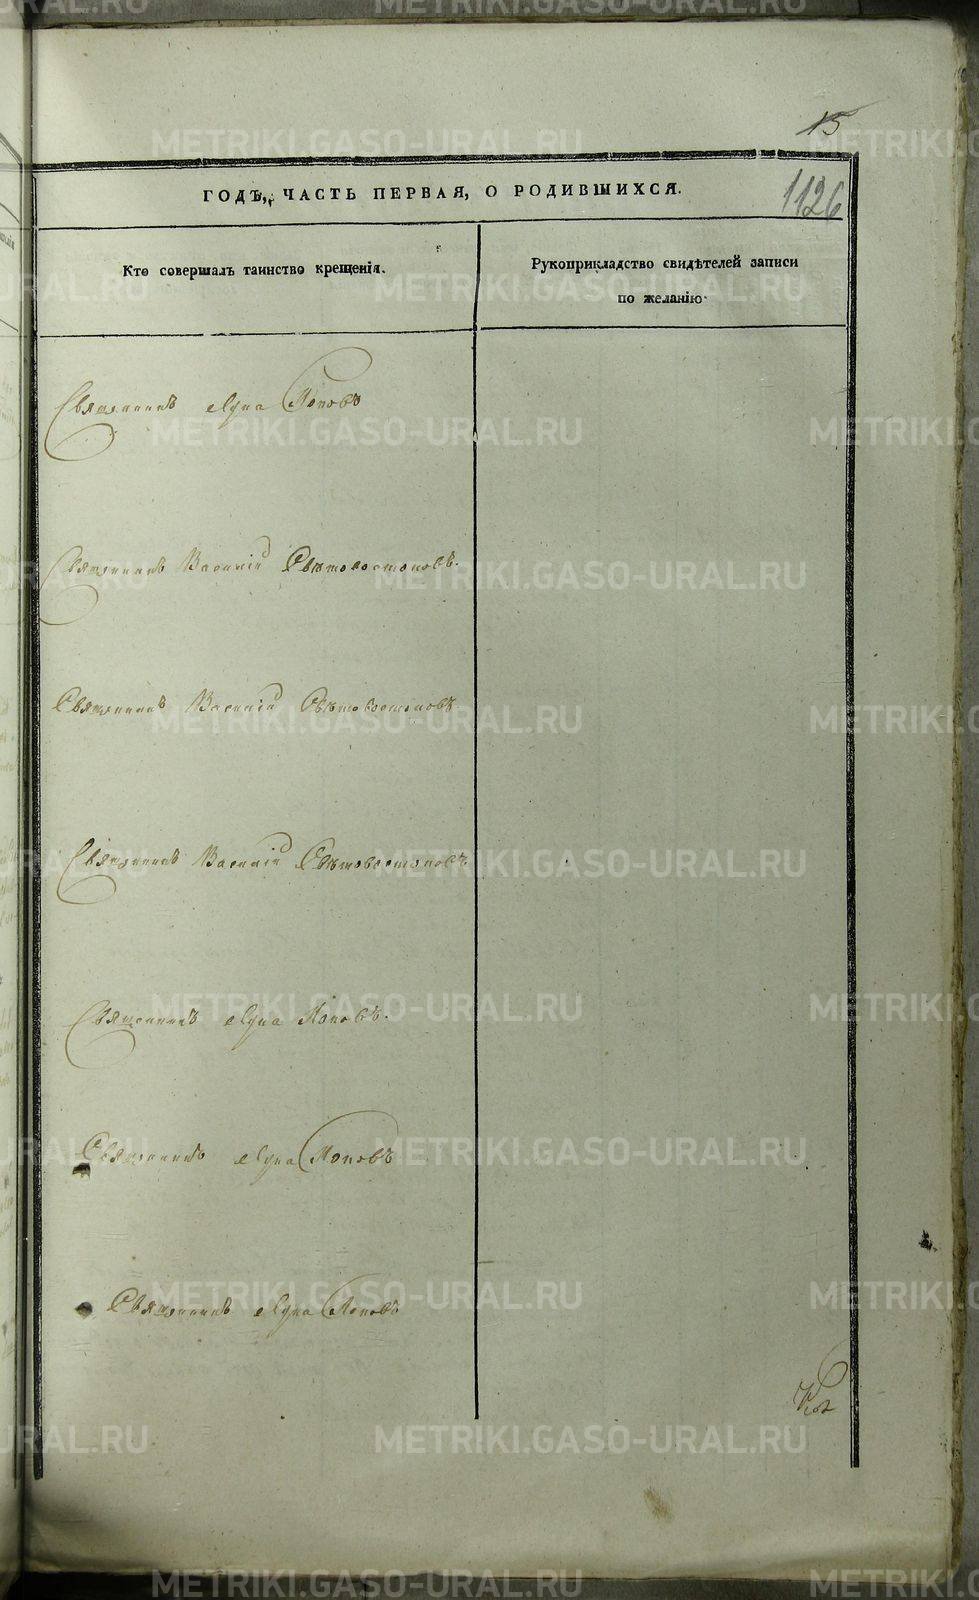 15
ГОДЪ, ЧАСТЬ ПЕРВАЯ, О РОДИВШИХСЯ.
1126
Кто совершалъ таинство крещенія.
Рукоприкладство свидѣтелей записи
по желанію.
Священникъ Лука Поповъ
Священникъ Василій Свѣтовостоковъ.
Священникъ Василій Свѣтовостоковъ
Священникъ Василій Свѣтовостоковъ
Священникъ Лука Поповъ.
Священникъ Лука Поповъ
Священникъ Лука Поповъ
METRIKI.GASO-URAL.RU